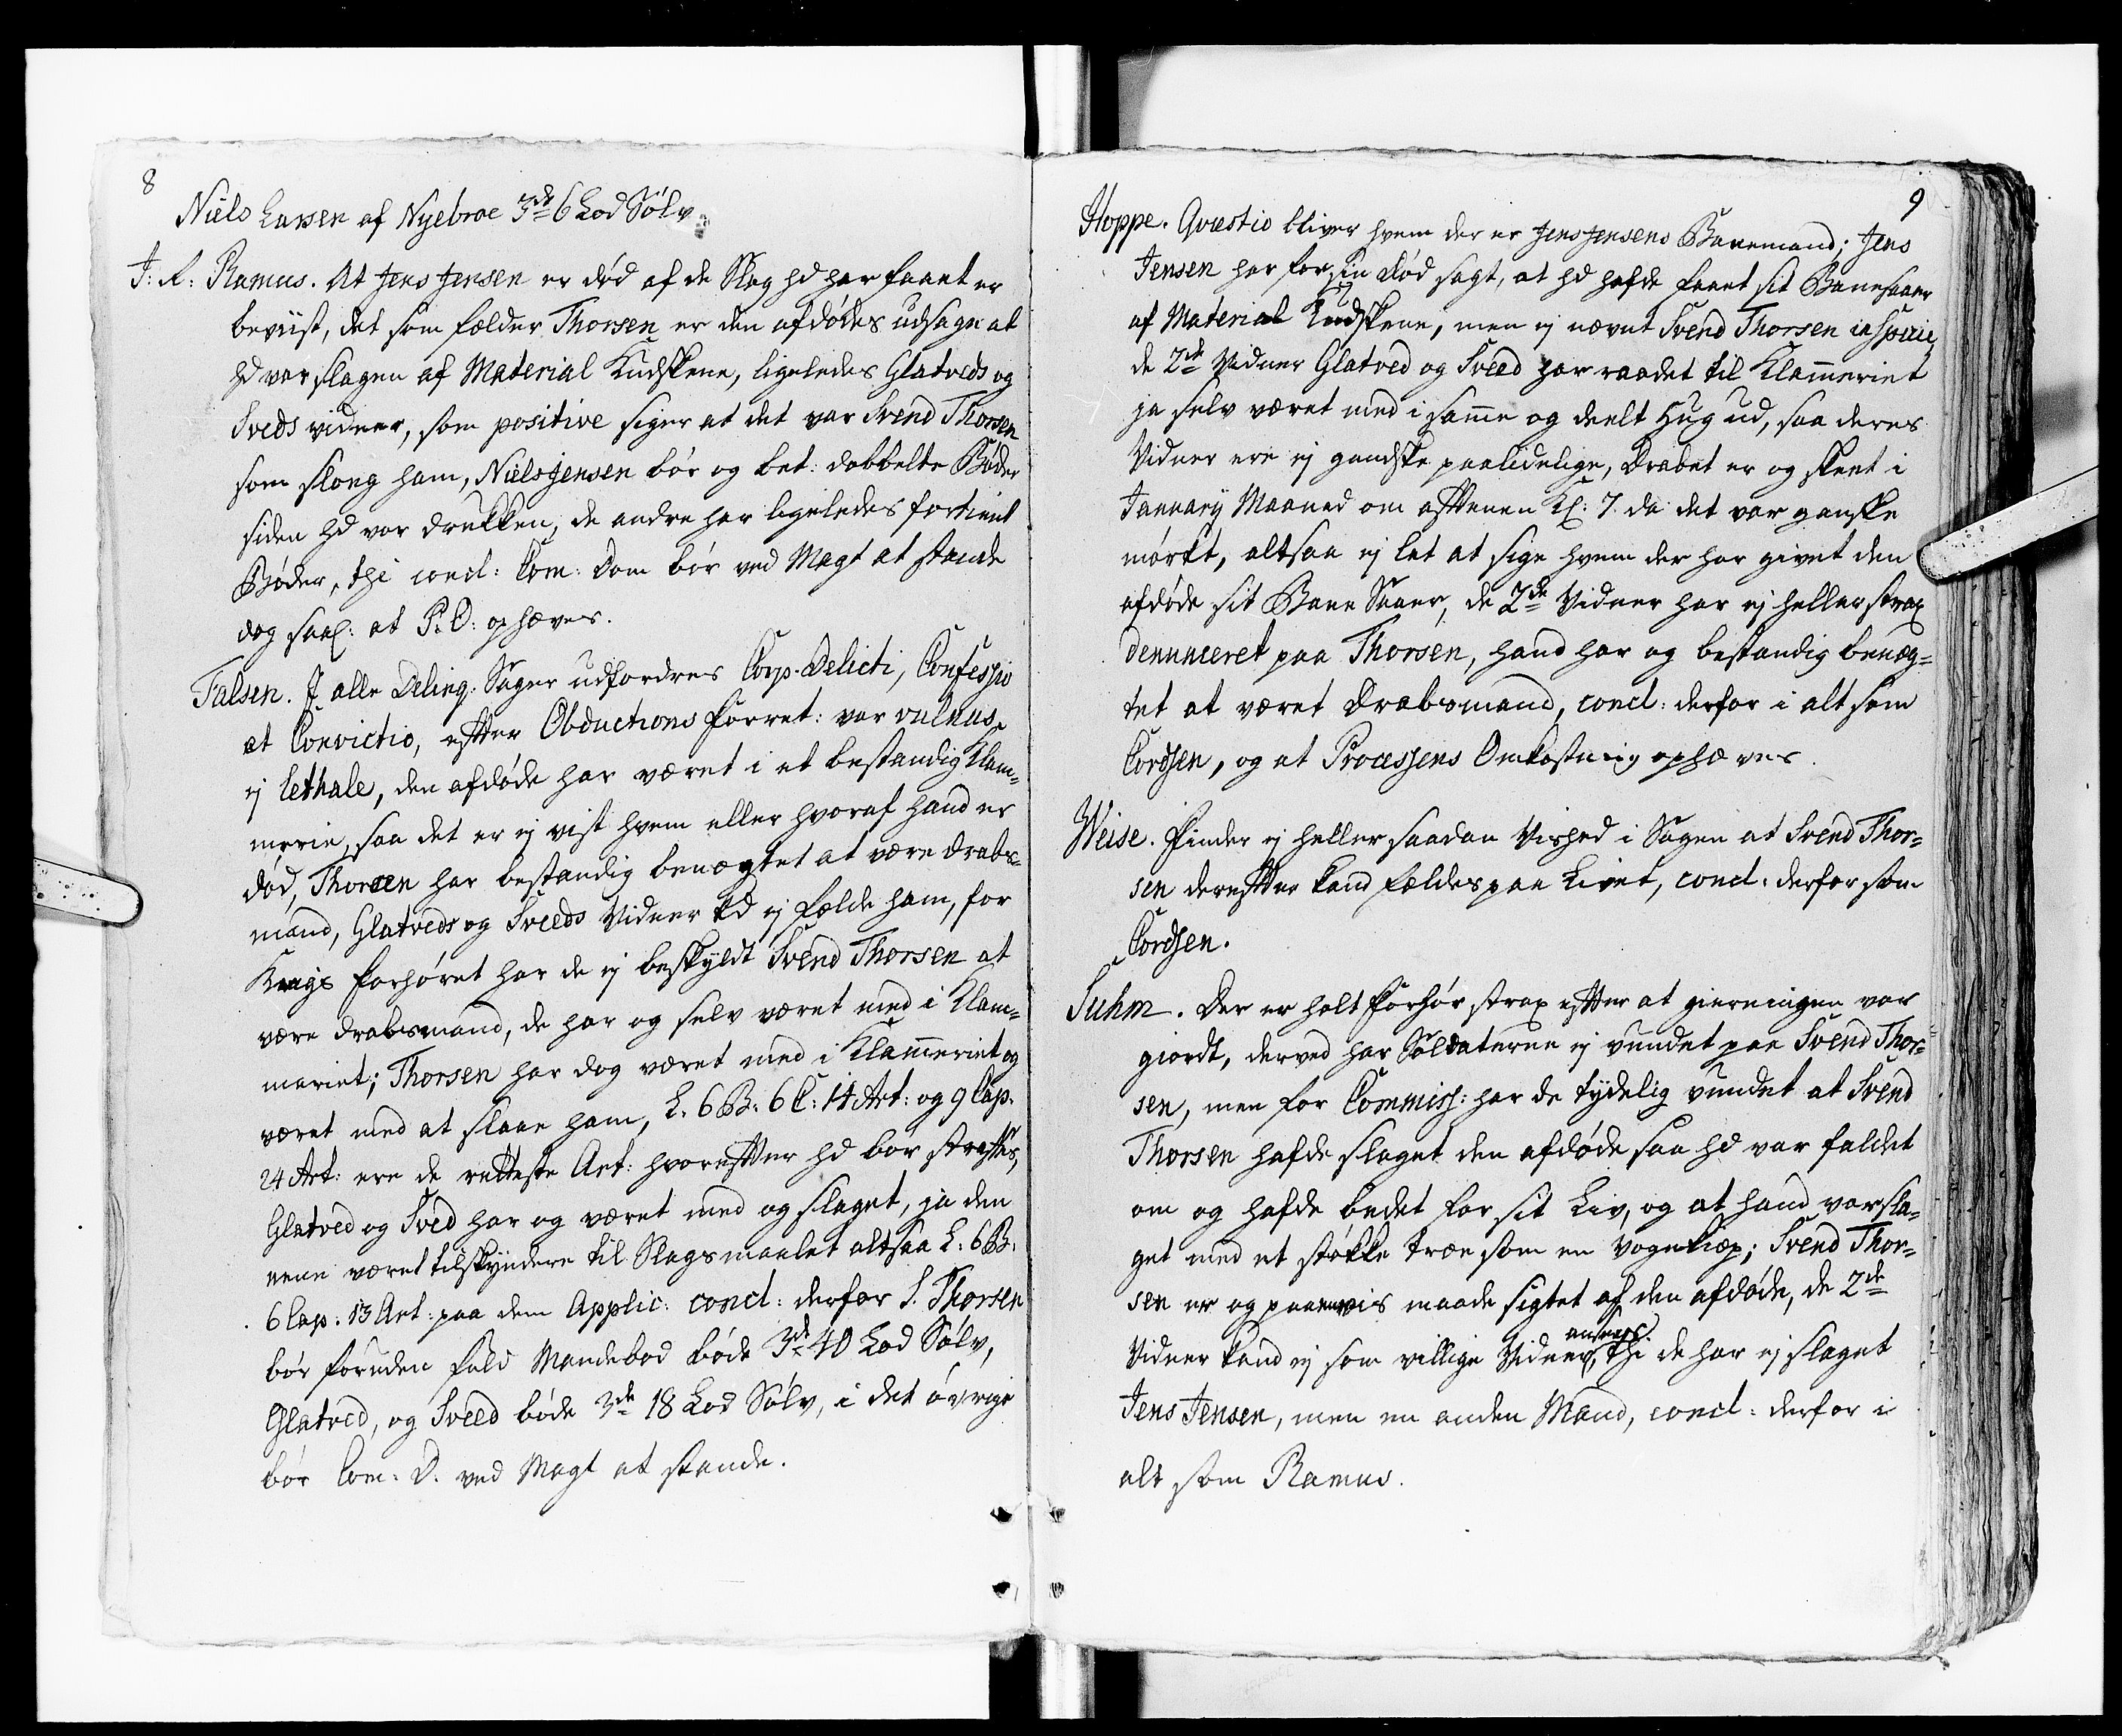 8
Niels Larsen af Nyebroe 3de 6 Lod Sølv.
J: R: Ramus. At Jens Jensen er død af de Slag hd har faaet er
beviist, det som fælder Thorsen er den afdødes udsagn at
hd var slagen af Material Kudskene, ligeledes Glatveds og
Sveds vidner, som positive siger at det var Svend Thorsen
som slog ham, Niels Jensen bør og bet: dobbelte Bøder
siden hd var drukken, de andre har ligeledes fortient
Bøder, thi concl: Com: Dom bør ved Magt at stande
dog saal: at P: O: ophæves.
Falsen. J alle Delinq: Sager udfordres Corp. Delicti, Confessio
et Convictio, efter Obductions Forret: var vulnus
ej lethale, den afdøde har været i et bestandig Klam-
merie, saa det er ej vist hvem eller hvoraf hand er
død, Thorsen har bestandig benægtet at være drabs-
mand, Glatveds og Sveeds Vidner kd ej fælde ham, for
Krigs Forhøret har de ej beskyldt Svend Thorsen at
være drabsmand, de har og selv været med i Klam-
meriet; Thorsen har dog været med i Klammeriet og
været med at slaae ham, L. 6 B: 6 C: 14 Art: og 9 Cap.
24 Art: ere de rætteste Art: hvorefter hd bør straffes,
Glatved og Sved har og været med og slaget, ja den
eene været tilskyndere til Slagsmaalet altsaa L: 6 B.
6 Cap: 13 Art: paa dem Applic: concl: derfor S. Thorsen
bør foruden fuld Mandebod bøde 3de 40 Lod Sølv,
Glatved, og Sveed bøde 3de 18 Lod Sølv, i det øvrige
bør Com: D. ved Magt at stande.
9
Hoppe. Qvæstio bliver hvem der er Jens Jensens Banemand; Jens
Jensen har for sin død sagt, at hd hafde faaet sit Banesaar
af Material Kudskene, men ej nævnt Svend Thorsen in Specie,
de 2de Vidner Glatved og Sveed har raadet til Klammeriet
ja selv været med i samme og deelt Hug ud, saa deres
Vidner ere ej gandske paalidelige, Drabet er og skeet i
Januarij Maaned om aftenen Kl: 7. da det var ganske
mørkt, altsaa ej let at sige hvem der har givet den
afdøde sit Bane Saar, de 2de Vidner har ej heller strax
denunceret paa Thorsen, hand har og bestandig benæg-
tet at været Drabsmand, concl: derfor i alt som
Cordsen, og at Processens Omkostning ophæves.
Weise. Finder ej heller saadan Vished i Sagen at Svend Thor-
sen derefter kand fældes paa Livet, concl: derfor som
Cordsen.
Suhm. Der er holt Forhør strax efter at gierningen var
giordt, derved har Soldaterne ej vundet paa Svend Thor-
sen, men for Commiss: har de tydelig vundet at Svend
Thorsen hafde slaget den afdøde saa hd var faldet
om og hafde bedet for sit Liv, og at hand var sla-
get med et støkke træe som en Vognkiep; Svend Thor-
sen er og paa en vis maade sigtet af den afdøde, de 2de
Vidner kand ej som villige Vidner ansees, thi de har ej slaget
Jens Jensen, men en anden Mand, concl: derfor i
alt som Ramus.